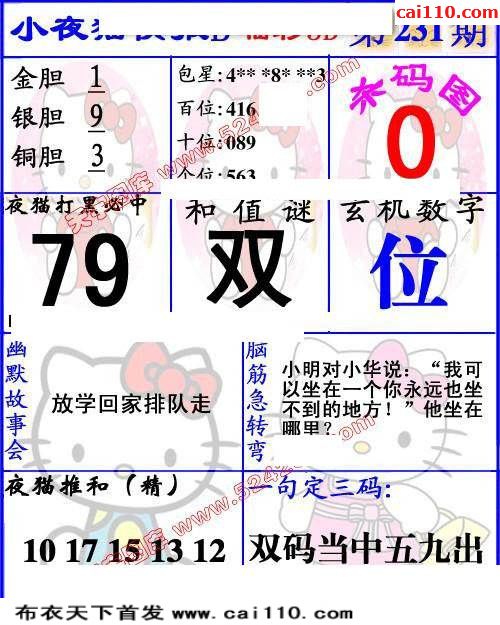 cai110.com
小夜猫
福彩3D
第231期
金胆 1
银胆 9
铜胆 3
包星:4** *8* **3
百位:416
十位:089
个位:563
来码图
0
夜猫打黑必中
79
和值谜
双
玄机数字
位
幽默故事会
放学回家排队走
脑筋急转弯
小明对小华说:“我可
以坐在一个你永远也坐
不到的地方!”他坐在
哪里?
夜猫推和(精)
10 17 15 13 12
一句定三码:
双码当中五九出
布衣天下首发 www.cai110.com